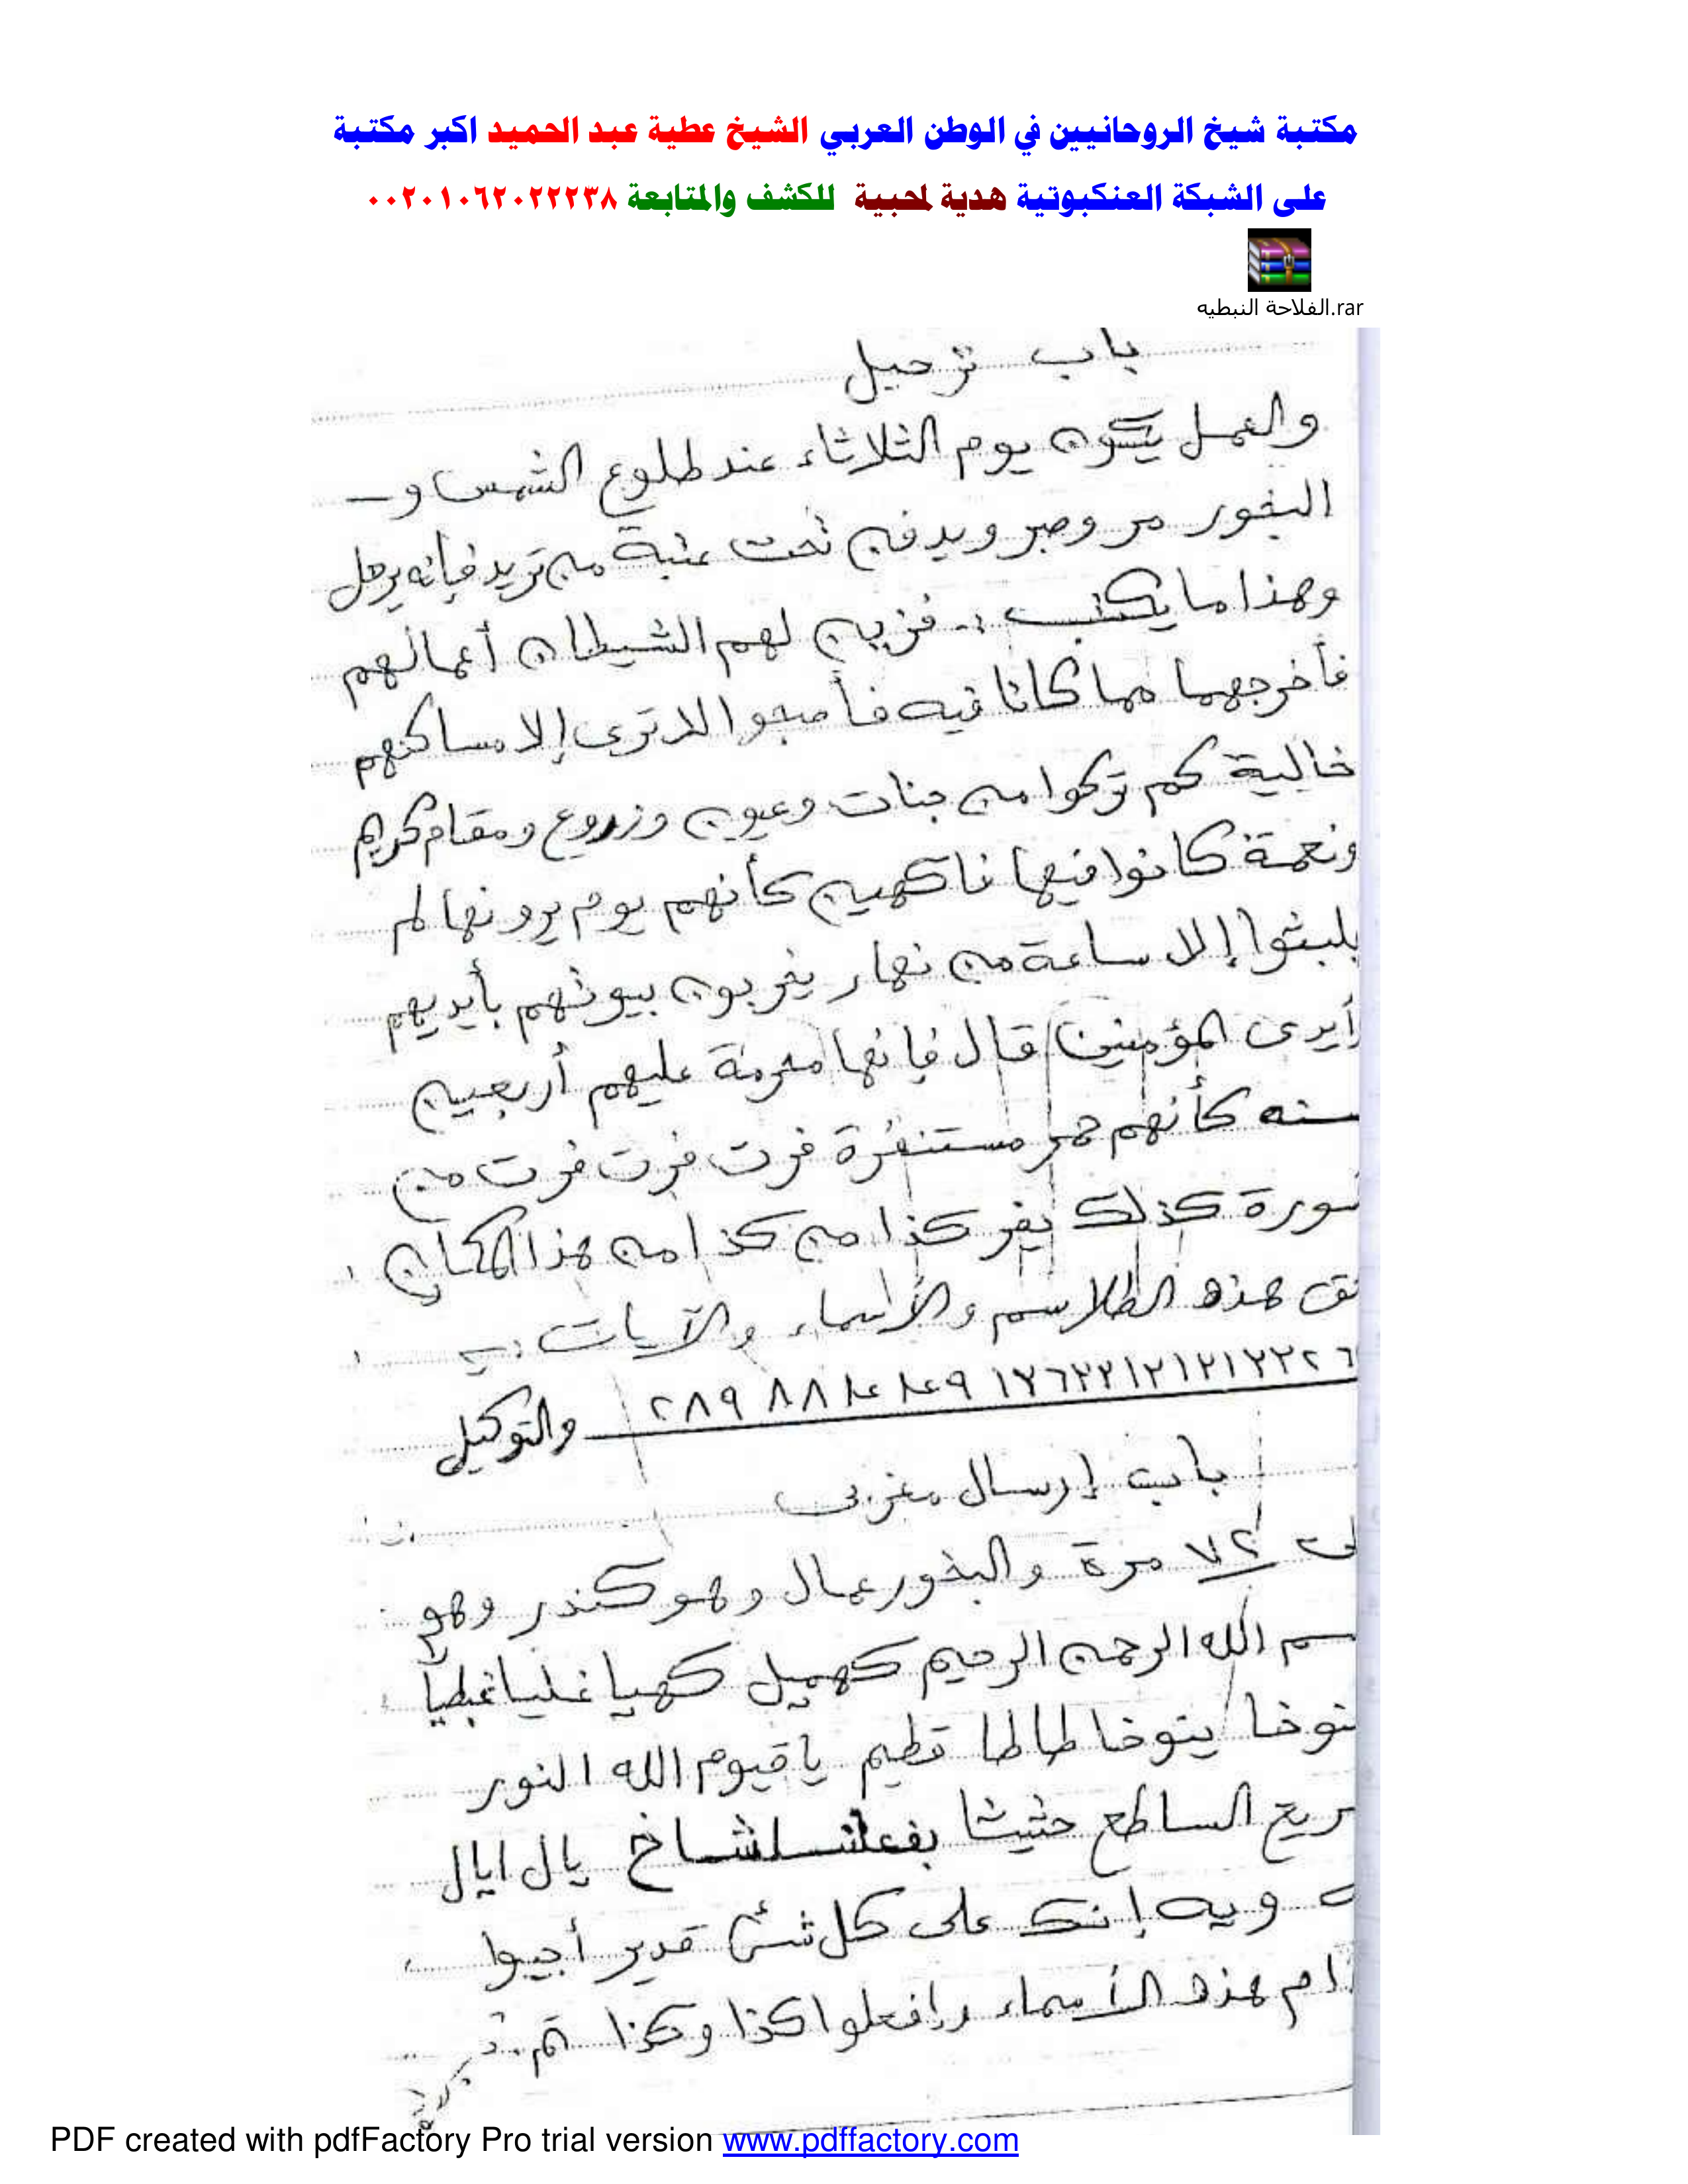 مكتبة شيخ الروحانيين في الوطن العربي الشيخ عطية عبد الحميد اكبر مكتبة
على الشبكة العنكبوتية هدية لمحبية للكشف والمتابعة ٠٠٢٠١٠٦٢٠٢٢٢٣٨
الفلاحة النبطيه.rar
باب ترحيل
والعمل يكون يوم الثلاثاء عند طلوع الشمس و
البخور مر وصبر ويدفن تحت عتبة من تريد فإنه يرحل
وهذا ما يكتب :. فزين لهم الشيطان أعمالهم
فأخرجهما مما كانا فيه فأصبحوا لا ترى إلا مساكنهم
خالية كم تركوا من جنات وعيون وزروع ومقام كريم
ونعمة كانوا فيها فاكهين كأنهم يوم يرونها لم
يلبثوا إلا ساعة من نهار يخربون بيوتهم بأيديهم
أيدى المؤمنين قال فإنها محرمة عليهم أربعين
سنه كأنهم حمر مستنفرة فرت فرت فرت من
سورة كذلك يفر كذا من كذا من هذا المكان
هذه الطلاسم والأسماء والآيات
والتوكيل
باب إرسال مغربى
٧٢ مرة والبخور عمال وهو كندر وهو
سم الله الرحمن الرحيم كهيل كهيا غليا غبطيا
نوخا ينوخا طاطا قطيم يا قيوم الله النور
ريع الساطع حثيثا يال ايال
ويه إنك على كل شئ قدير أجيبوا
ام هذه الأسماء وافعلوا كذا وكذا تم
PDF created with pdfFactory Pro trial version www.pdffactory.com